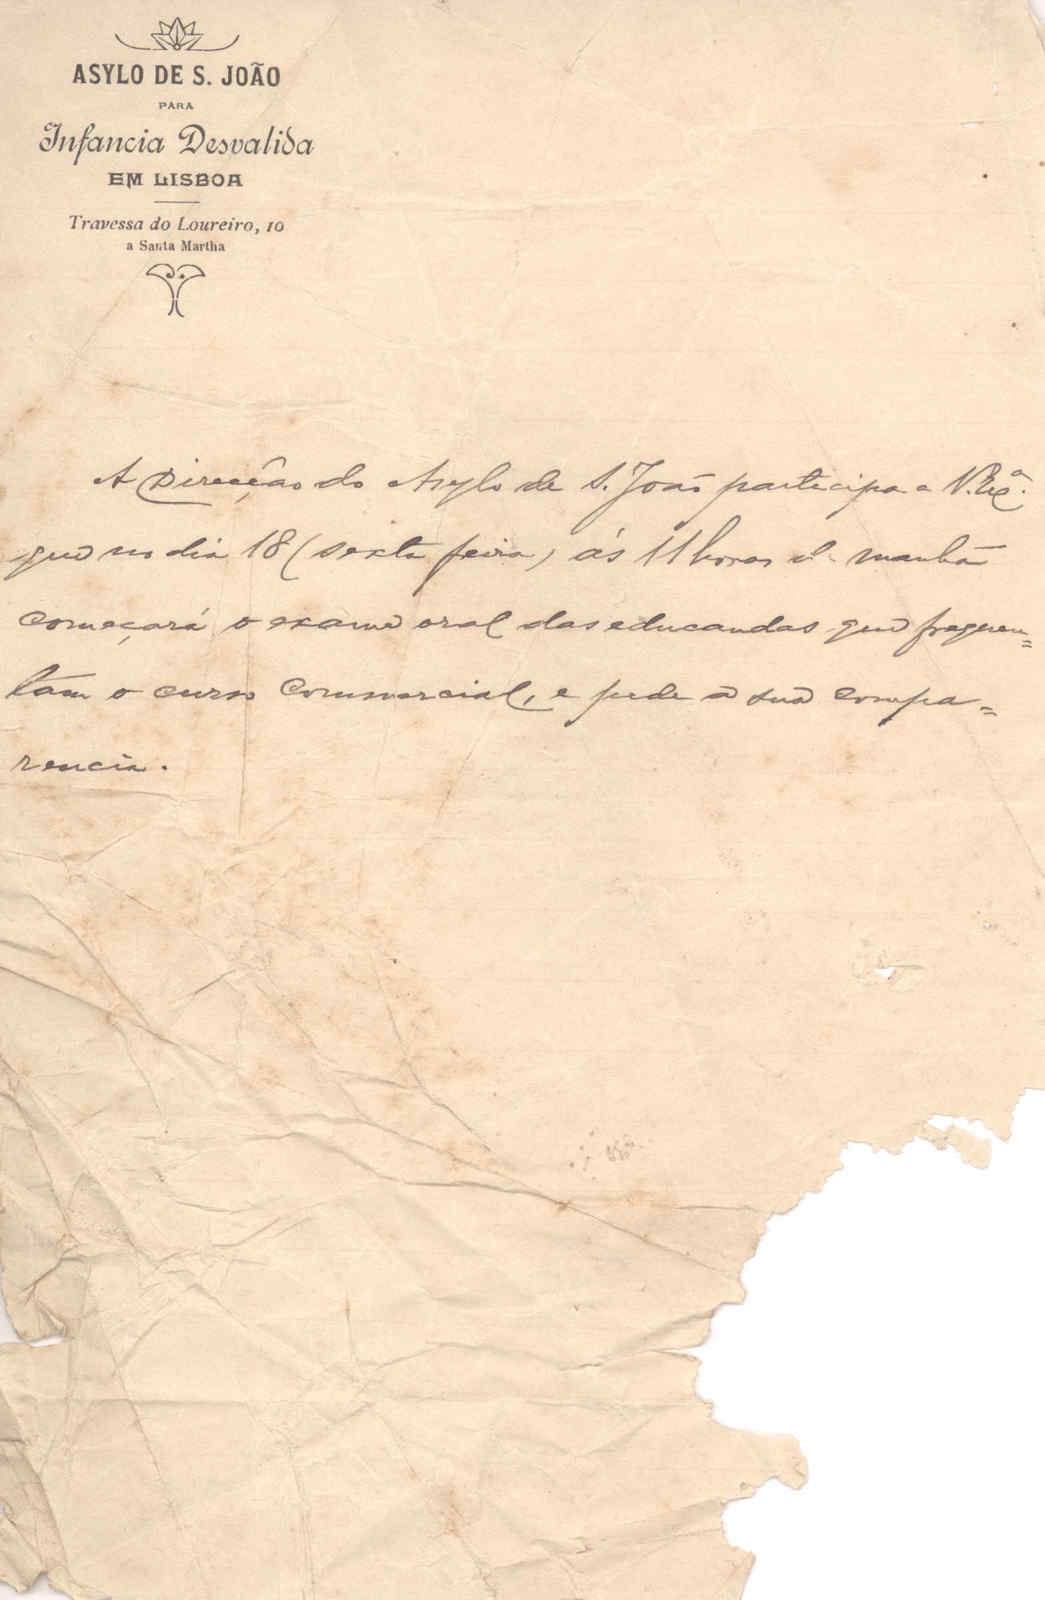 ASYLO DE S. JOÃO
PARA
Infancia Desvalida
EM LISBOA
Travessa do Loureiro, 10
a Santa Martha
A Direcção do Asylo de S. João participa a V. Exª.
que no dia 18 (sexta feira) ás 11 horas da manhã
começará o exame oral das educandas que frequen=
tam o curso commercial, e pede a sua compa=
rencia.